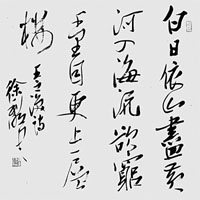 白日依山盡黃
河入海流欲窮
千里目更上一層
樓
王之渙詩
徐